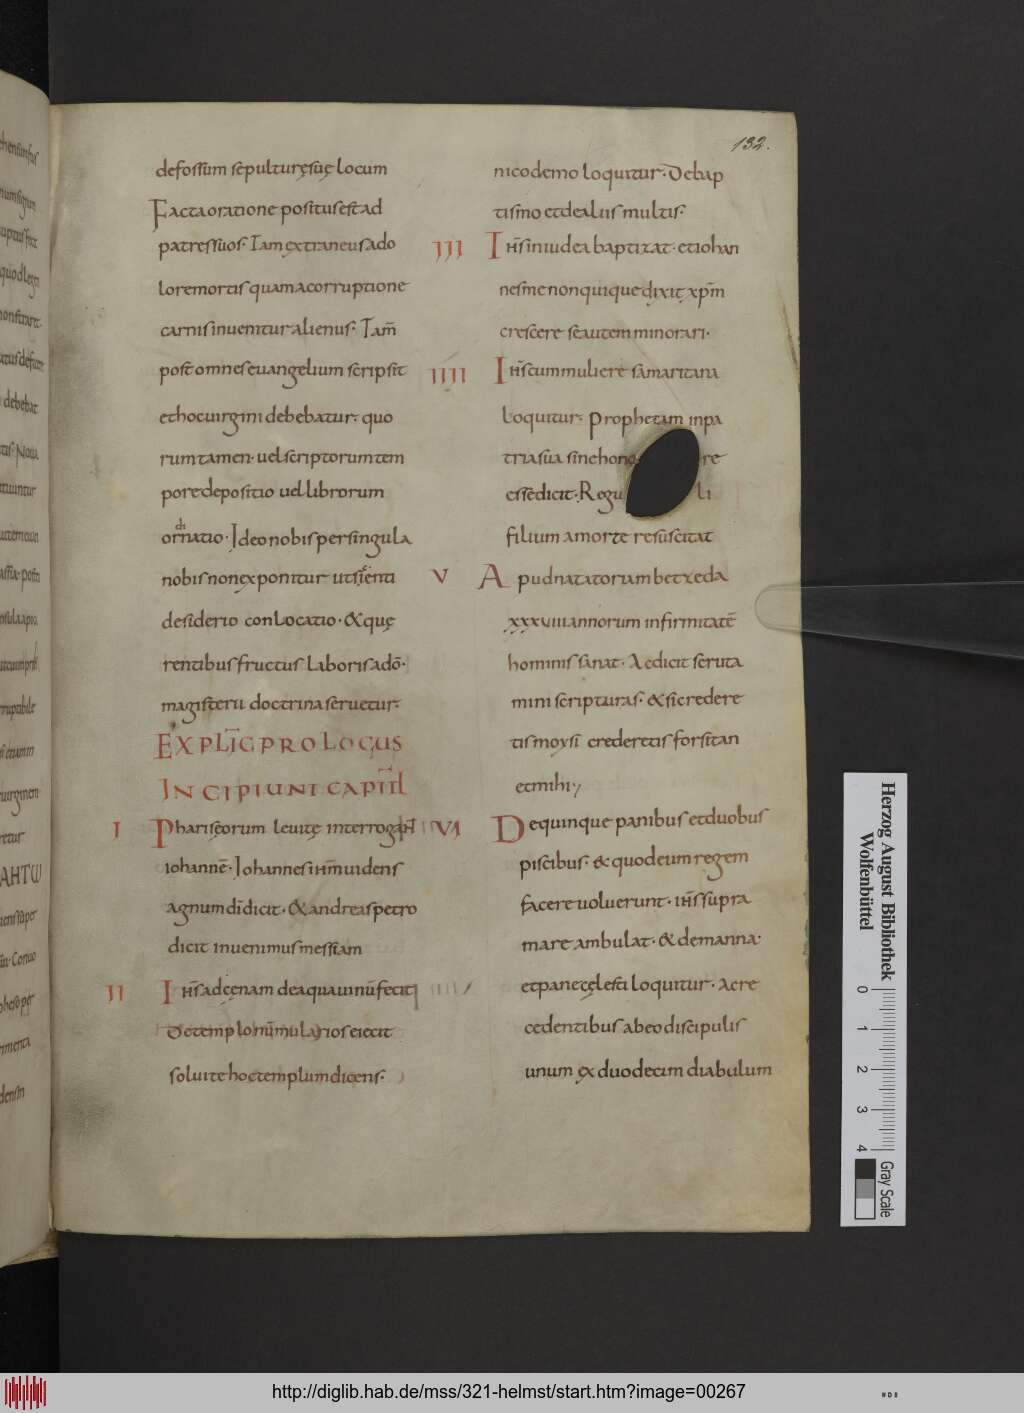 132.
defossum sepulturęsuę locum
Facta oratione positus est ad
patres suos. Tam extraneus ado
lore mortis quam acorruptione
carnis inuenitur alienus. Tam̄
post omnes euangelium scripsit
et hoc uirgini debebatur. quo
rum tamen. uel scriptorum tem
pore depositio uel librorum
ornatio. Ideo nobis per singula
nobis non exponitur ut sienti
desiderio conlocatio. & quę
rentibus fructus laboris & dō.
magisterii doctrina seruetur.
EXPLIC PROLOGUS
INCIPIUNT CAPITL
I Phariseorum leuitę interrogant
iohannē. Iohannes ihm̄ uidens
agnum dī dicit. & andreas petro
dicit inuenimus messiam
II Ihs̄ ad cęnam de aqua uinū fecit
De templo nūmularios eiecit
soluite hoc templum dicens.
nicodemo loquitur. De bap
tismo et de aliis multis.
III Ihs̄ in iudea baptizat. et iohan
nes me non qui que dixit xpm̄
crescere se autem minorari.
IIII Ihs̄ cum muliere samaritana
loquitur. Prophetam in pa
tria sua sine hono re
esse dicit. Regu li
filium a morte resuscitat
V Apud natatoriam betzeda
xxxviii annorum infirmitatē
hominis sanat. Ae dicit scruta
mini scripturas. & si credere
tis moysi crederetis forsitan
et mihi;
VI De quinque panibus et duobus
piscibus. & quod eum regem
facere uoluerunt. ihs̄ supra
mare ambulat. & de manna.
et pane cęlesti loquitur. Ac re
cedentibus ab eo discipulis
unum ex duodecim diabulum
Herzog August Bibliothek
Wolfenbüttel
0 1 2 3 4
Gray Scale
http://diglib.hab.de/mss/321-helmst/start.htm?image=00267